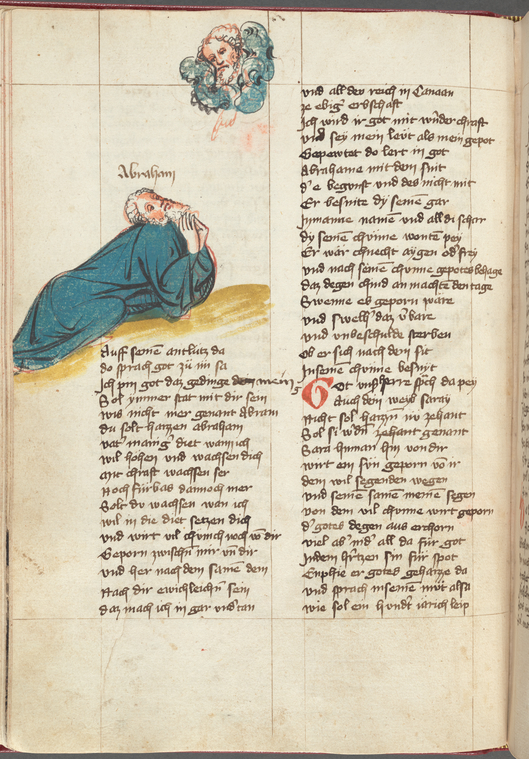 Abraham
Auff seinē antlütz da
do sprach got zü im sa
Ich pin got daz gedinge mein
Sol ymmer stat mit dir sein
wis nicht mer genant Abram
du solt haizen abraham
vat' maing' diet wann ich
wil hohen vnd wachsen dich
mit chraft wachsen ser
Noch fürbas dannoch mer
Solt du wachsen wan ich
wil in die diet setzen dich
vnd wirt vil chünich noch vō dir
Geporn zwischñ mir vñ dir
vnd her nach dem samē dem
Nach dir ewichleichñ sein
daz mach ich in gar vndtan
vnd all dew reich in Canaan
ze ebig' erbschaft
Ich wird ir got mit wnder chraft
vnd sey mein lewt als mein gepot
Gepewtet do lert in got
Abrahamē mit dem snit
d'e begunst vnd des nicht mit
Er besnite dy seinē gar
Inmannē namē vnd all di schar
dy seinē chünne wontē pey
Er wār chnecht aygen od' frey
vnd nach seinē chünne gepotes behage
daz degen chind an machtē den tage
Swenne es geporn wāre
vnd swelh' daz v̄bare
vnd vnbeschnide sterben
Ob er sich nach dem sit
In seinē chünne besnyt
Got vnß herre sp'ch da pey
Auch dein weyb saray
Nicht sol haizzñ nv zehant
Sol si w'dñ zehant genant
Sara hinnan hin von dir
wirt ein sün geporn vō ir
dem wil segenden wegen
vnd seinē samē meinē segen
von dem vil chünne wirt geporn
d' gotes degen aus erchorn
viel als nid' all da für got
In dem h'tzen sin für spot
Enphie er gotes gehaizze da
vnd sprach in seinē müt also
wie sol ein hundt iārich leip